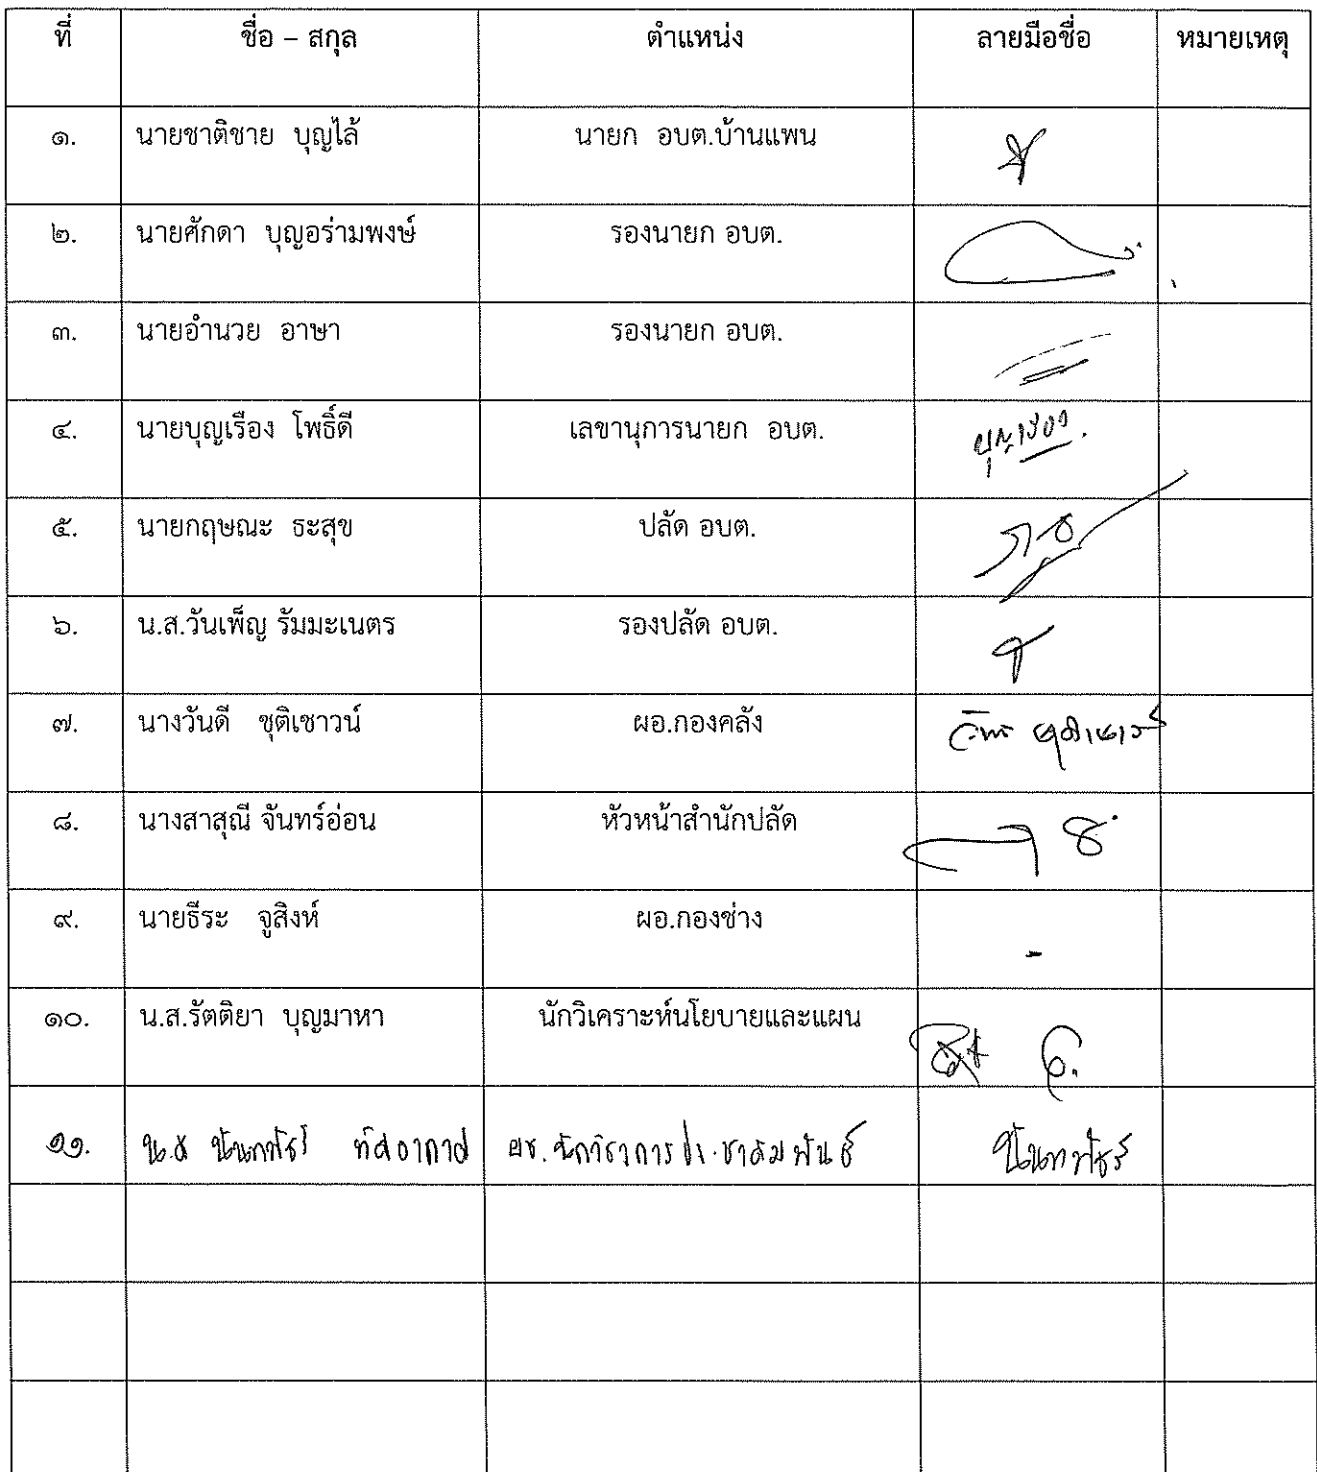 ที่ ชื่อ – สกุล ตำแหน่ง ลายมือชื่อ หมายเหตุ
๑. นายชาติชาย บุญไล้ นายก อบต.บ้านแพน
๒. นายศักดา บุญอร่ามพงษ์ รองนายก อบต.
๓. นายอำนวย อาษา รองนายก อบต.
๔. นายบุญเรือง โพธิ์ดี เลขานุการนายก อบต. บุญเรือง
๕. นายกฤษณะ ธะสุข ปลัด อบต.
๖. น.ส.วันเพ็ญ รัมมะเนตร รองปลัด อบต.
๗. นางวันดี ชุติเชาวน์ ผอ.กองคลัง
๘. นางสาสุณี จันทร์อ่อน หัวหน้าสำนักปลัด
๙. นายธีระ จูสิงห์ ผอ.กองช่าง -
๑๐. น.ส.รัตติยา บุญมาหา นักวิเคราะห์นโยบายและแผน
๑๑. น.ส นันทพัชร์ ทัศอากาศ ผช.นักวิชาการประชาสัมพันธ์ นันทพัชร์